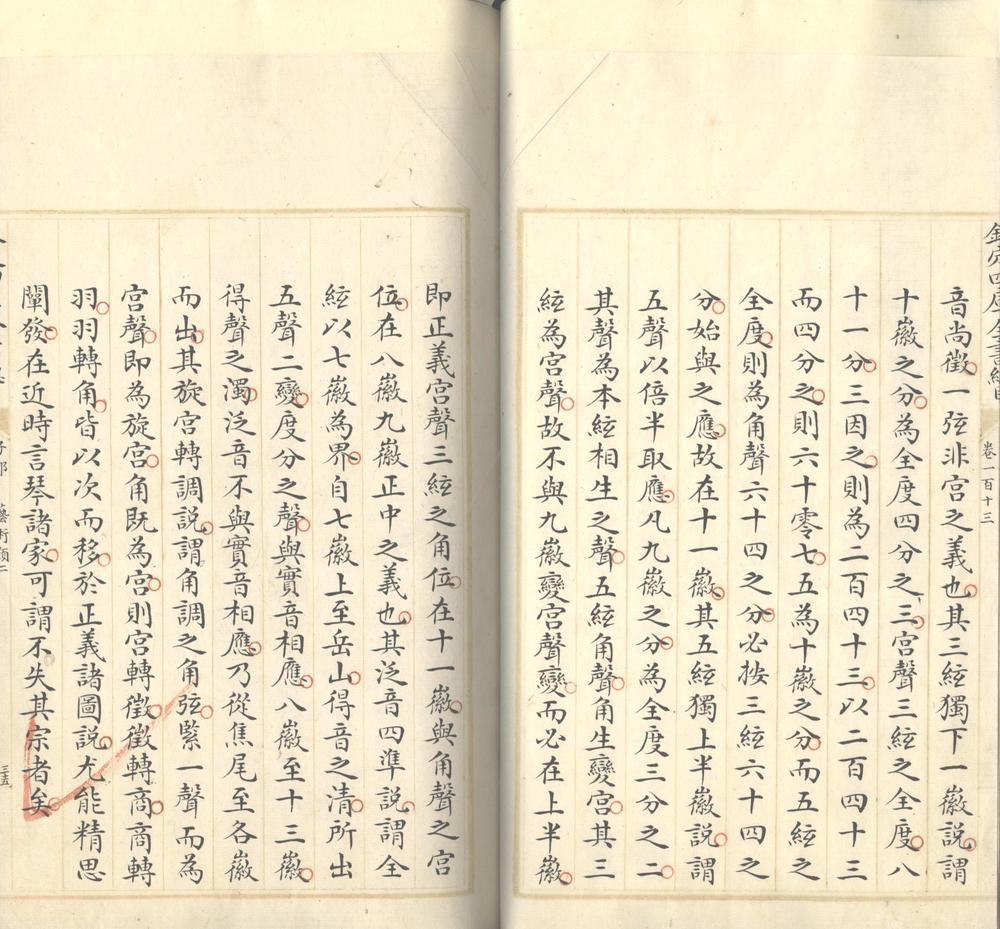 欽定四庫全書總目
卷一百十三
音尚徵一弦非宮之義也其三絃獨下一徽説謂
十徽之分為全度四分之三宮聲三絃之全度八
十一分三因之則為二百四十三以二百四十三
而四分之則六十零七五為十徽之分而五絃之
全度則為角聲六十四之分必按三絃六十四之
分始與之應故在十一徽其五絃獨上半徽説謂
五聲以倍半取應凡九徽之分為全度三分之二
其聲為本絃相生之聲五絃角聲角生變宮其三
絃為宮聲故不與九徽變宮聲變而必在上半徽
即正義宮聲三絃之角位在十一徽與角聲之宮
位在八徽九徽正中之義也其泛音四準説謂全
絃以七徽為界自七徽上至岳山得音之清所出
五聲二變度分之聲與實音相應八徽至十三徽
得聲之濁泛音不與實音相應乃從焦尾至各徽
而出其旋宮轉調説謂角調之角弦緊一聲而為
宮聲即為旋宮角既為宮則宮轉徵徵轉商商轉
羽羽轉角皆以次而移於正義諸圖説尤能精思
闡發在近時言琴諸家可謂不失其宗者矣
子部 藝術類二
三五